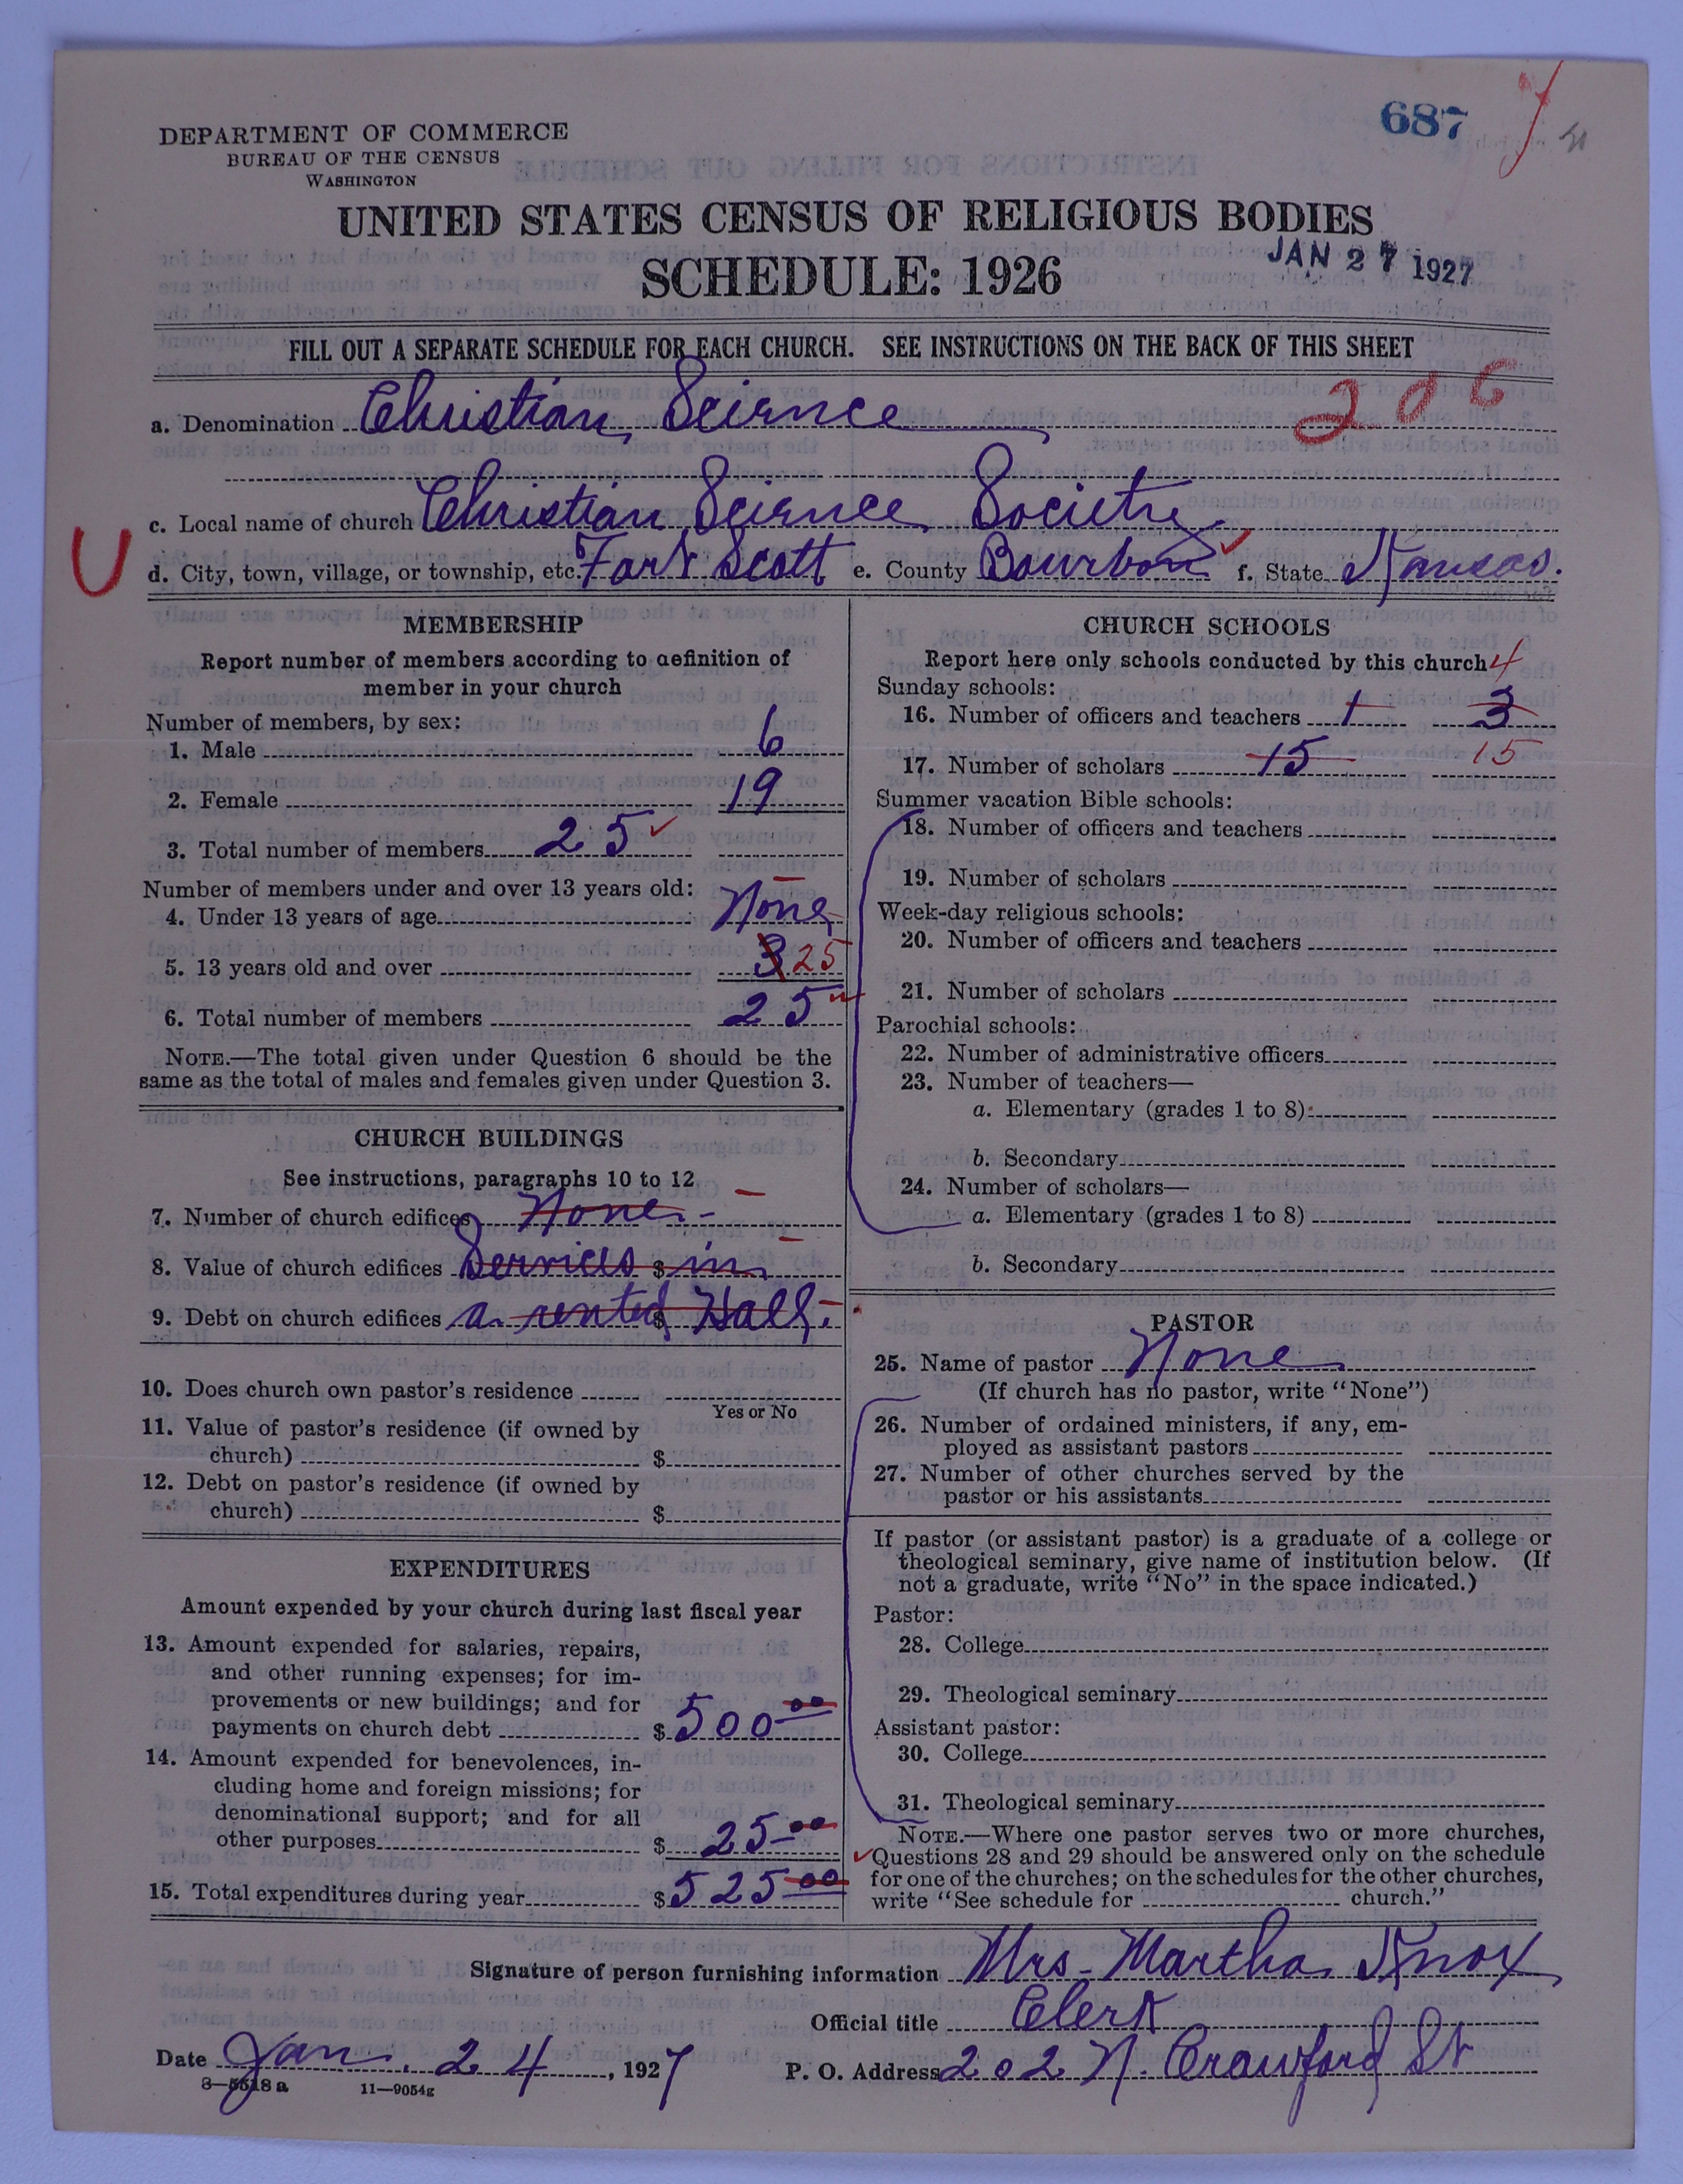 687
DEPARTMENT OF COMMERCE
BUREAU OF THE CENSUS
WASHINGTON
UNITED STATES CENSUS OF RELIGIOUS BODIES
SCHEDULE: 1926
JAN 27 1927
FILL OUT A SEPARATE SCHEDULE FOR EACH CHURCH. SEE INSTRUCTIONS ON THE BACK OF THIS SHEET
206
a. Denomination Christian Science
c. Local name of church Christian Science Society
U
d. City, town, village, or township, etc. Fort Scott e. County Bourbon f. State Kansas.
MEMBERSHIP
Report number of members according to definition of
member in your church
Number of members, by sex:
1. Male 6
2. Female 19
3. Total number of members 25
Number of members under and over 13 years old:
4. Under 13 years of age None
5. 13 years old and over 3 25
6. Total number of members 25
NOTE.—The total given under Question 6 should be the
same as the total of males and females given under Question 3.
CHURCH BUILDINGS
See instructions, paragraphs 10 to 12
7. Number of church edifices None
8. Value of church edifices Services $ in
9. Debt on church edifices a rented $ Hall.
10. Does church own pastor's residence
Yes or No
11. Value of pastor's residence (if owned by
church) $
12. Debt on pastor's residence (if owned by
church) $
EXPENDITURES
Amount expended by your church during last fiscal year
13. Amount expended for salaries, repairs,
and other running expenses; for im-
provements or new buildings; and for
payments on church debt $ 500 00
14. Amount expended for benevolences, in-
cluding home and foreign missions; for
denominational support; and for all
other purposes $ 25 00
15. Total expenditures during year $ 525 00
CHURCH SCHOOLS
Report here only schools conducted by this church
4
Sunday schools:
16. Number of officers and teachers 1 3
17. Number of scholars 15 15
Summer vacation Bible schools:
18. Number of officers and teachers
19. Number of scholars
Week-day religious schools:
20. Number of officers and teachers
21. Number of scholars
Parochial schools:
22. Number of administrative officers
23. Number of teachers—
a. Elementary (grades 1 to 8)
b. Secondary
24. Number of scholars—
a. Elementary (grades 1 to 8)
b. Secondary
PASTOR
25. Name of pastor None
(If church has no pastor, write "None")
26. Number of ordained ministers, if any, em-
ployed as assistant pastors
27. Number of other churches served by the
pastor or his assistants
If pastor (or assistant pastor) is a graduate of a college or
theological seminary, give name of institution below. (If
not a graduate, write "No" in the space indicated.)
Pastor:
28. College
29. Theological seminary
Assistant pastor:
30. College
31. Theological seminary
NOTE.—Where one pastor serves two or more churches,
Questions 28 and 29 should be answered only on the schedule
for one of the churches; on the schedules for the other churches,
write "See schedule for church."
Signature of person furnishing information Mrs. Martha Knox
Official title Clerk
Date Jan. 24, 1927 P. O. Address 202 N. Crawford St
3—5518 a 11—9054g